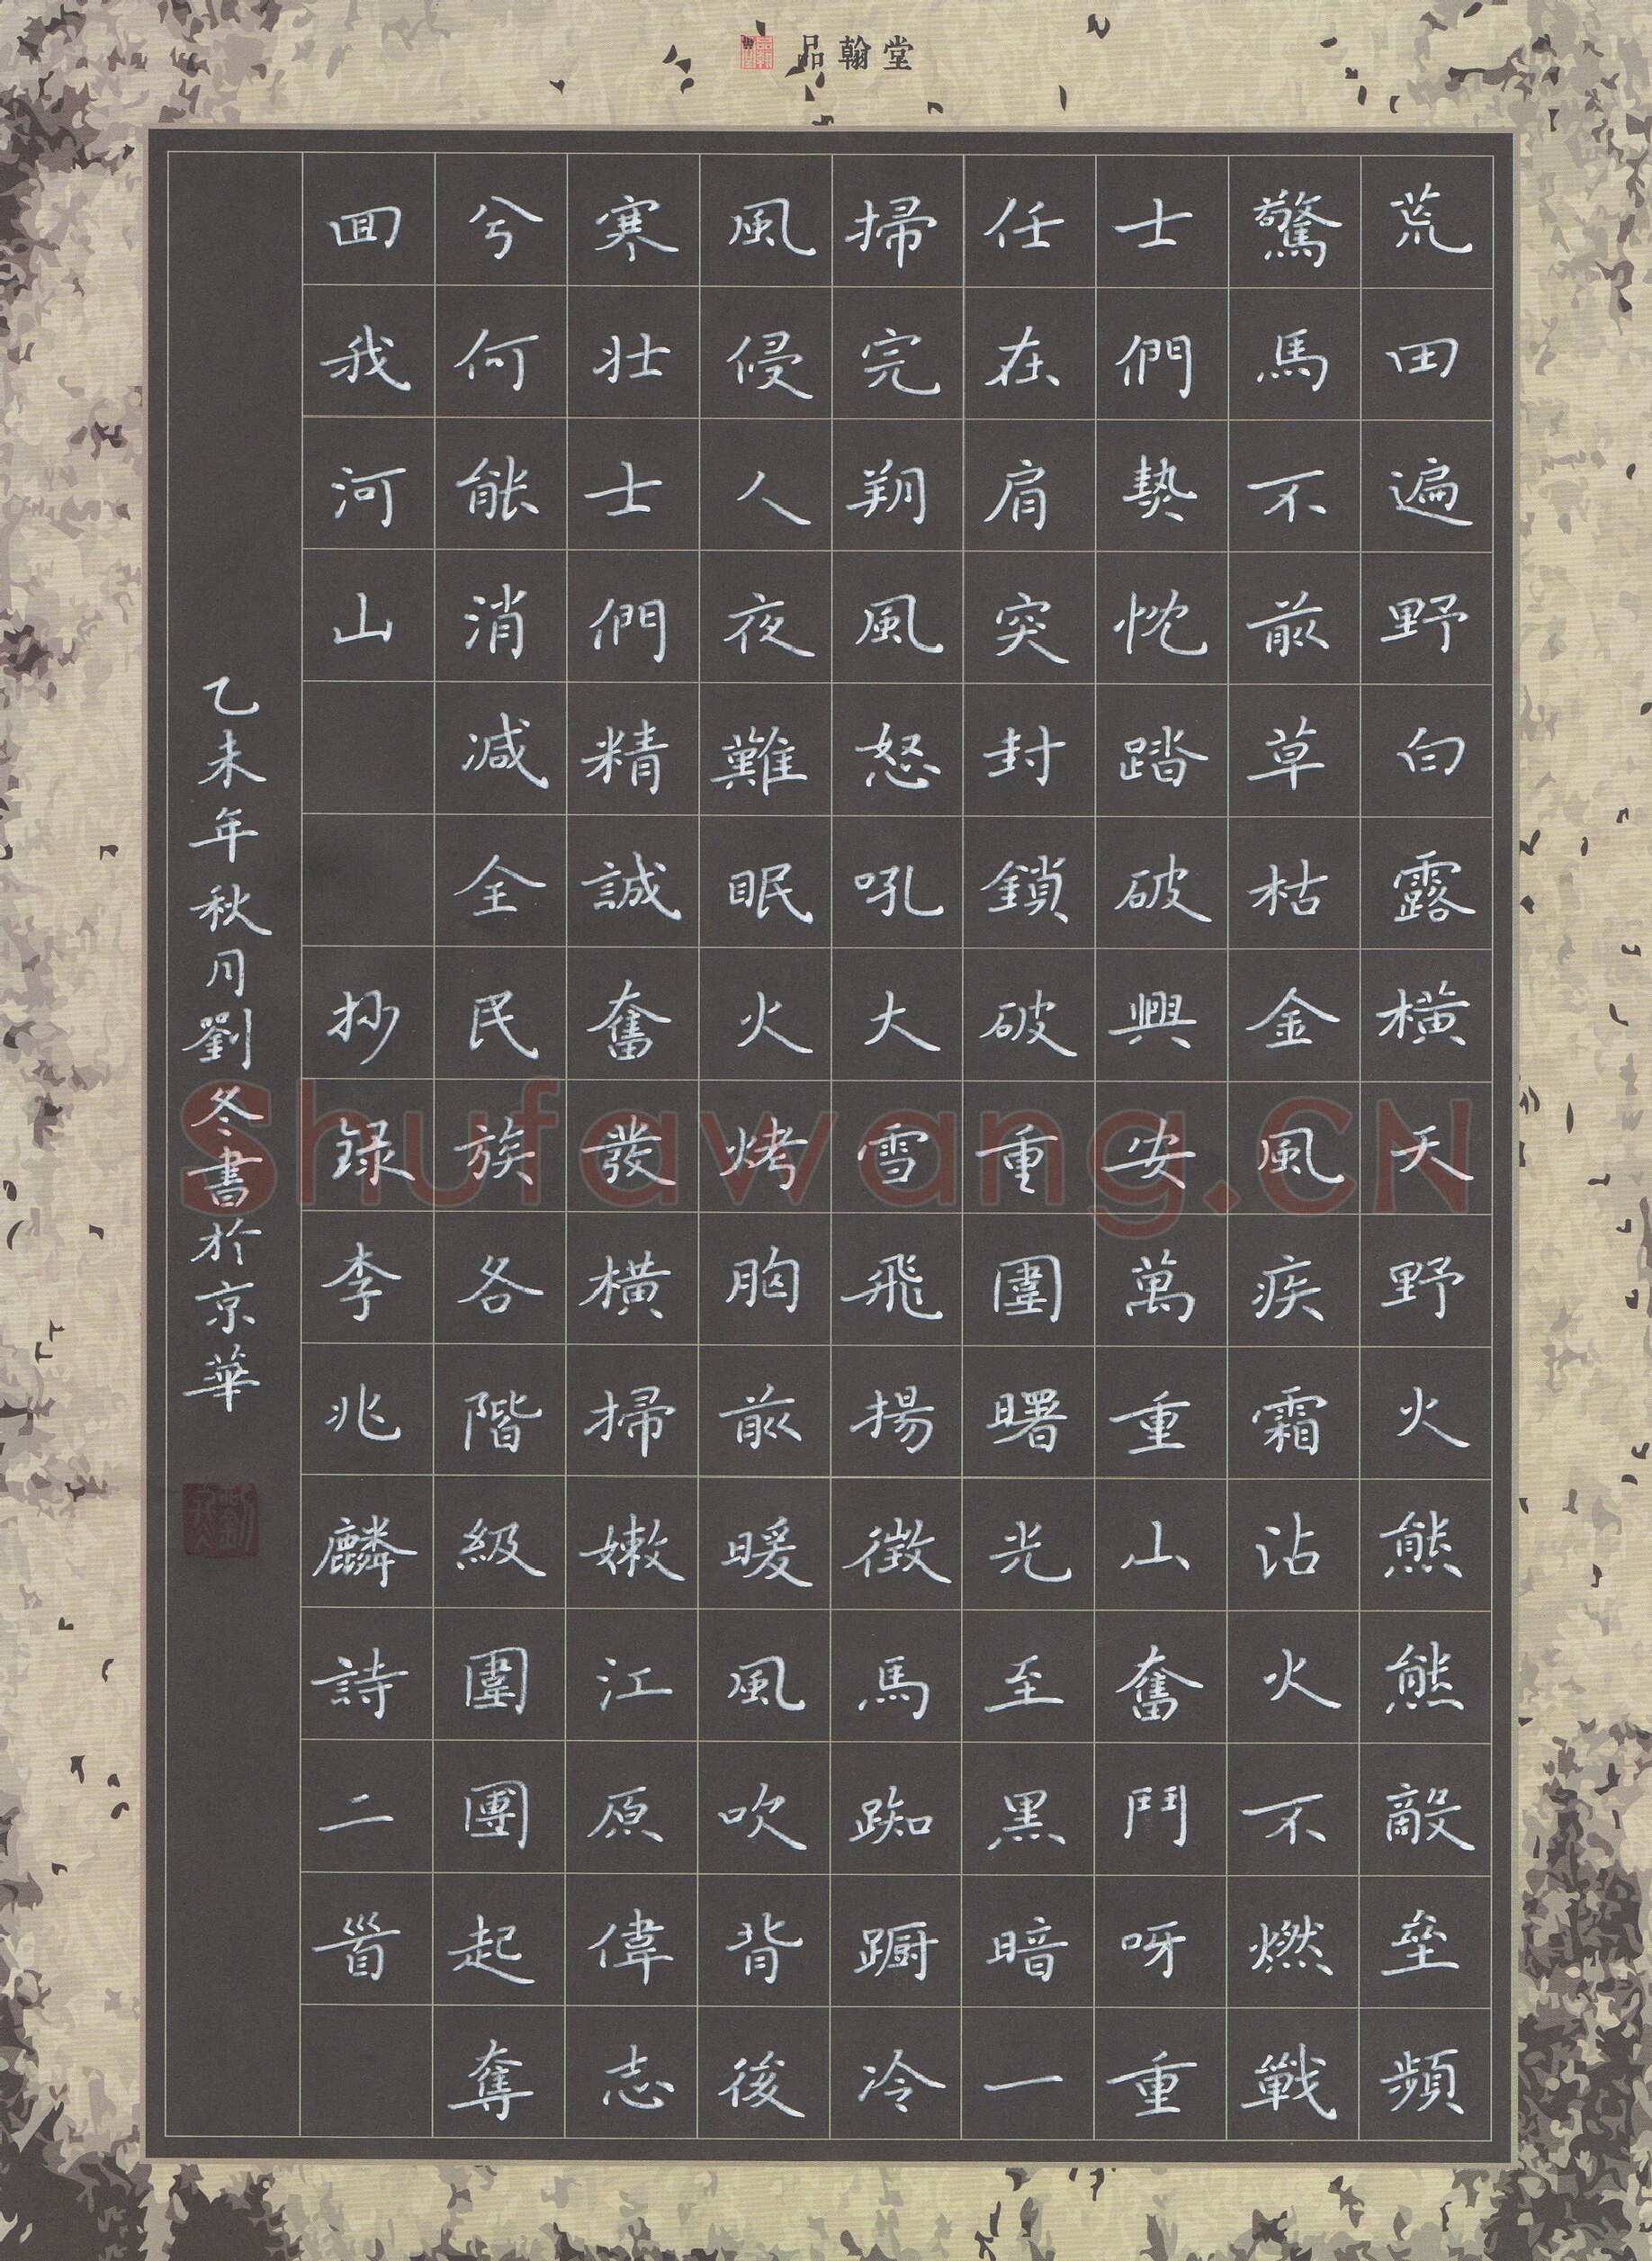 品翰堂
荒田遍野白露橫天野火熊熊敵壘頻
驚馬不前草枯金風疾霜沾火不燃戰
士們熱忱踏破興安萬重山奮鬥呀重
任在肩突封鎖破重圍曙光至黑暗一
掃完朔風怒吼大雪飛揚徵馬踟躕冷
風侵人夜難眠火烤胸前暖風吹背後
寒壯士們精誠奮發橫掃嫩江原偉志
兮何能消滅全民族各階級團團起奪
回我河山
抄錄李兆麟詩二首
乙未年秋月劉冬書於京華
Shufawang.CN